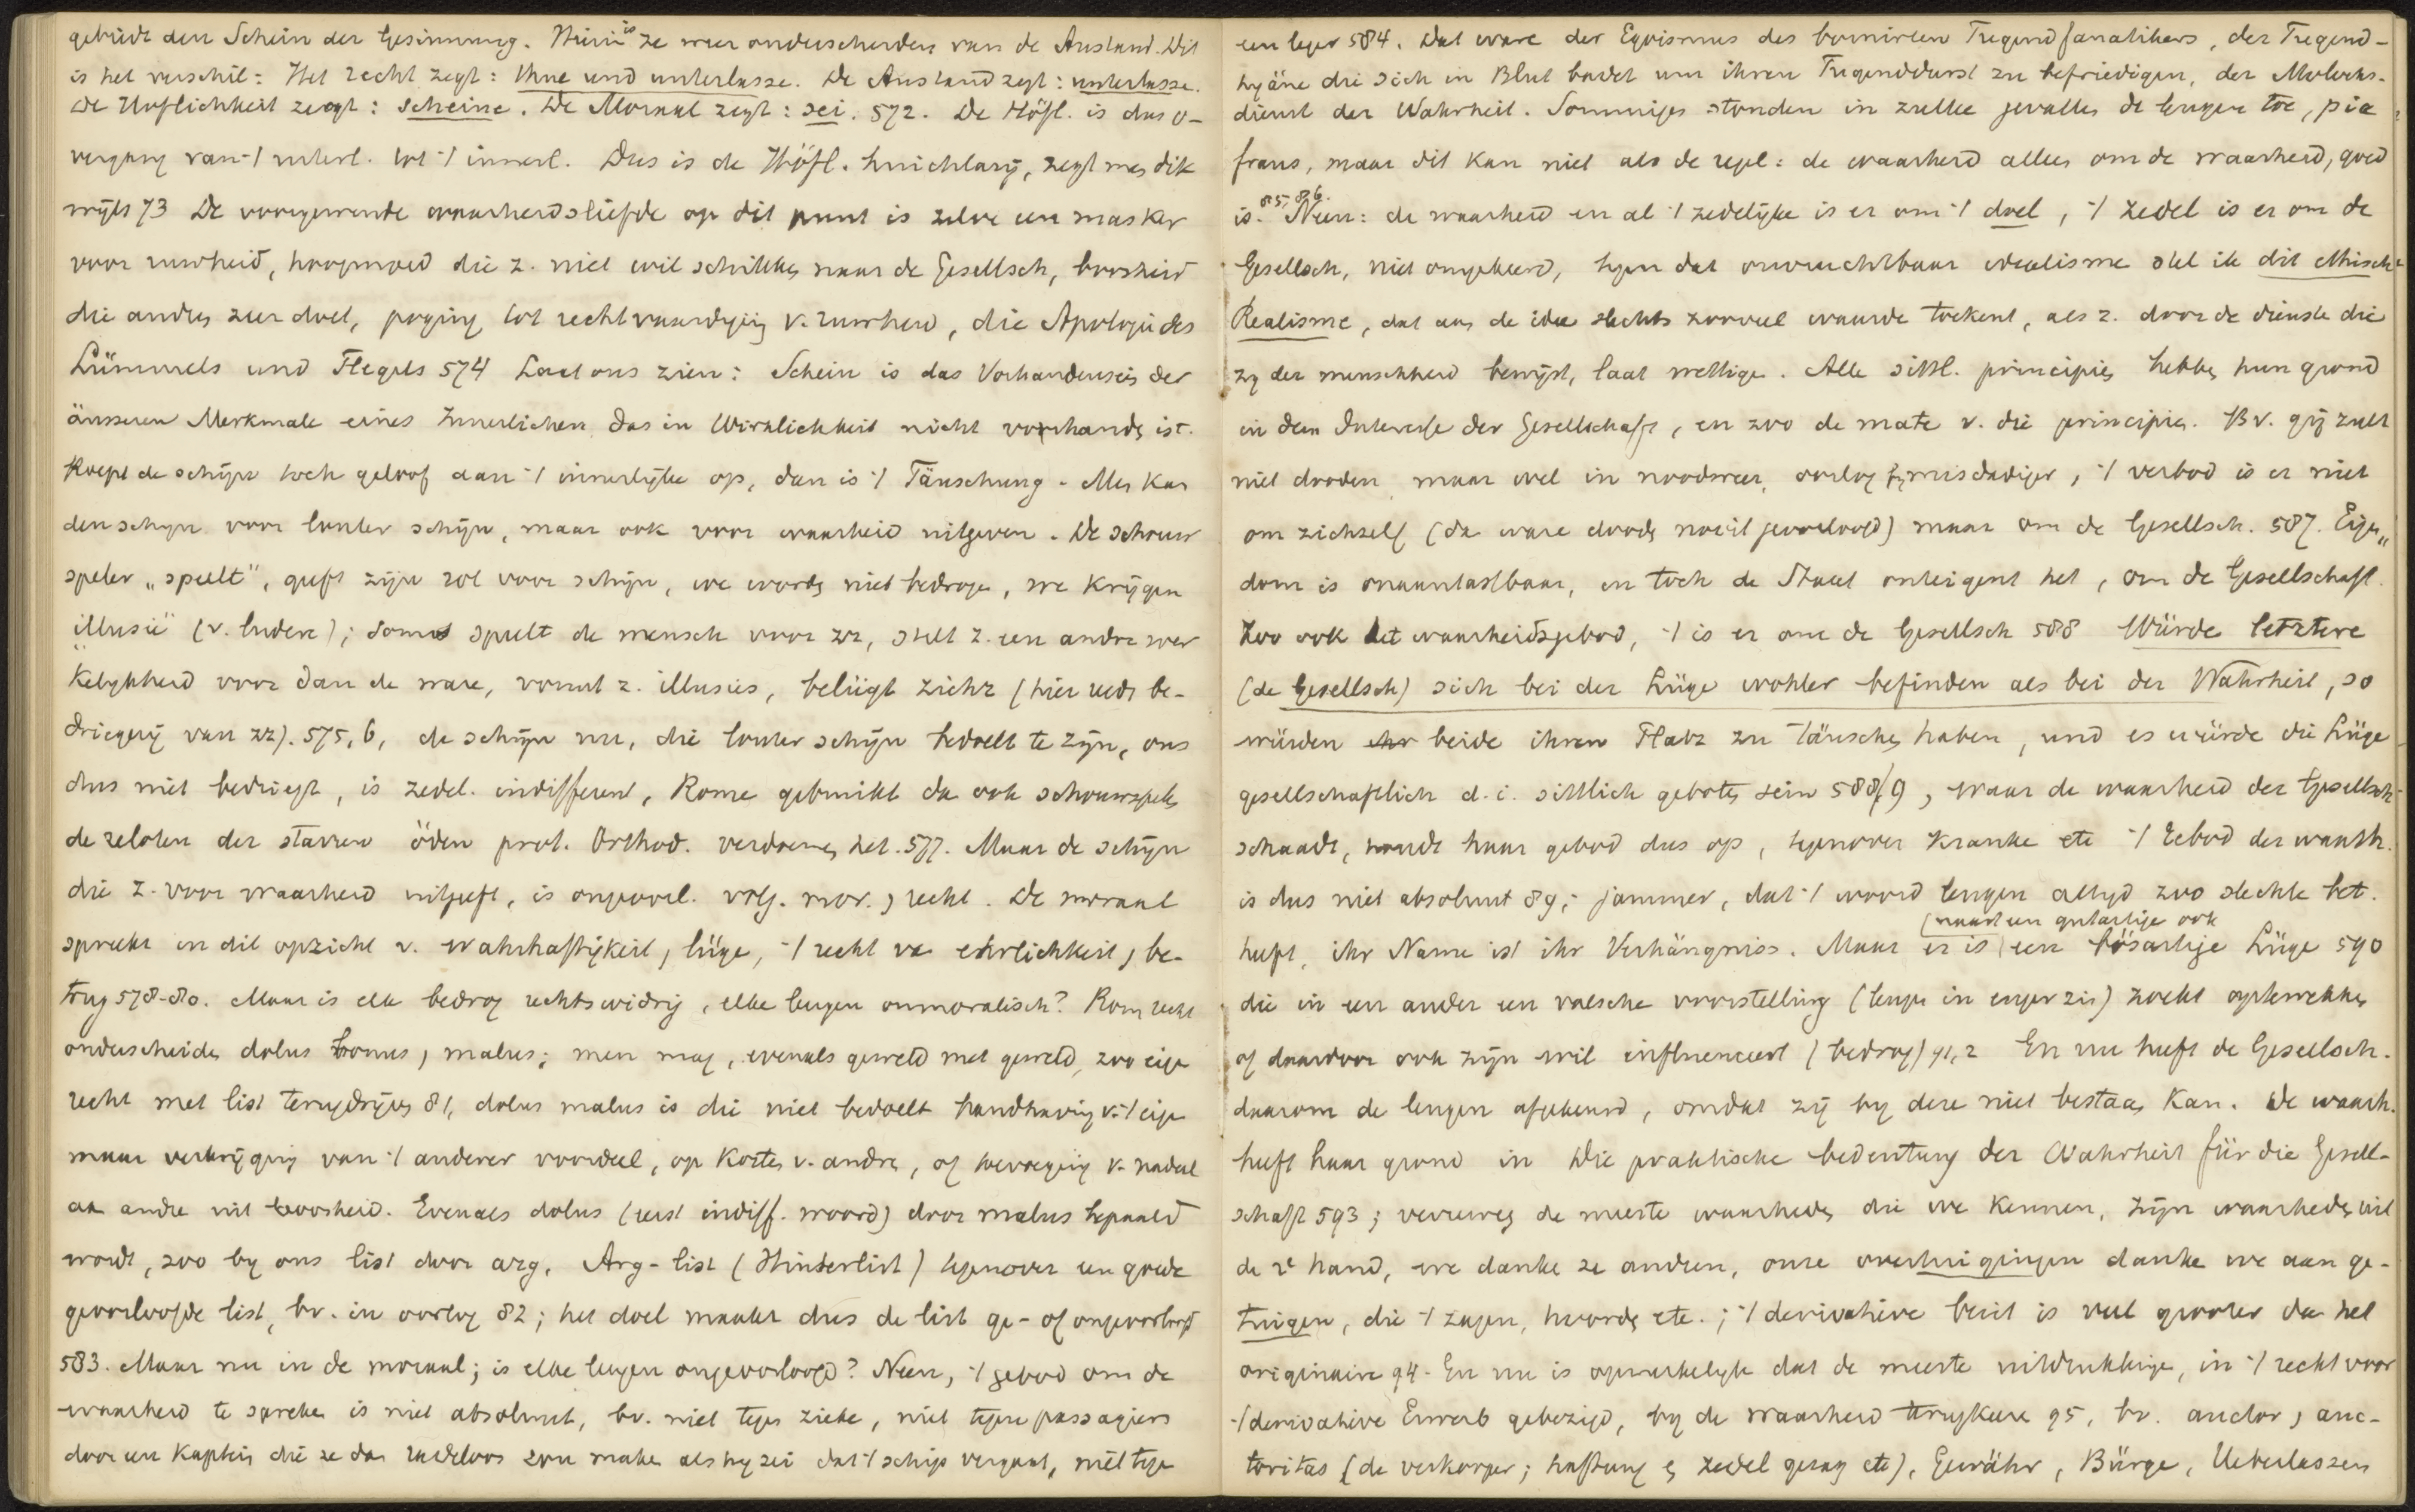 gebiedt den Schein der Gesinnung. Hierin is ze weer onderscheiden van de Anstand. Dit
is het verschil: Het recht zegt: thue und unterlasse. De Anstand zegt: unterlasse.
De Höflichkeit zegt: scheine. De Moraal zegt: sei. 572. De Höfl. is dus o-
vergang van 't uiterl. tot 't innerl. Dus is de Höfl. huichlarij, zegt men dik
wijls 73 De voorgewende waarheidsliefde op dit punt is zelve een masker
voor ruwheid, hoogmoed die z. niet wil schikken naar de Gesellsch, boosheid
die andren zeer doet, poging tot rechtvaardiging v. ruwheid, die Apologie des
Lümmels und Flegels 574 Laat ons zien: Schein is das Vorhandensein der
äusseren Merkmale eines Innerlichen das in Wirklichkeit nicht vorhanden ist.
Roept de schijn toch geloof aan 't innerlijke op, dan is 't Täuschung. Men kan
den schijn voor louter schijn, maar ook voor waarheid uitgeven. De schouw
speler „speelt", geeft zijn rol voor schijn, we worden niet bedrogen, we krijgen
„illusie" (v. ludere); soms speelt de mensch voor zz, stelt z. een andre wer
kelijkheid voor dan de ware, vormt z. illusies, belügt zichz (hier reeds be-
driegerij van zz). 575, 6, de schijn nu, die louter schijn bedoelt te zijn, ons
dus niet bedriegt, is zedel. indifferent, Rome gebruikt da ook schouwspelen
de zeloten der starren öden prot. Orthod. verdoemen het. 577. Maar de schijn
die z. voor waarheid uitgeeft, is ongeoorl. volg. mor. , recht. De moraal
spreekt in dit opzicht v. Wahrhaftigkeit, lüge, 't recht va ehrlichkeit, be-
trug 578-80. Maar is elk bedrog rechtswidrig, elke leugen onmoralisch? Rom recht
onderscheidt dolus bonus, malus; men mag, evenals geweld met geweld, zoo eigen
recht met list terugdrijven 81, dolus malus is die niet bedoelt handhaving v. 't eigen
maar verkrijging van 't anderer voordeel, op kosten v. andren, of toevoeging v. nadeel
aan andre uit boosheid. Evenals dolus (eerst indiff. woord) door malus bepaald
wordt, zoo by ons list door arg. Arg-list (Hinterlist) tegenover een goede
geoorloofde list, bv. in oorlog 82; het doel maakt dus de list ge- of ongeoorloofd
583. Maar nu in de moraal; is elke leugen ongeoorloofd? Neen, 't gebod om de
waarheid te spreken is niet absoluut, bv. niet tegen zieke, niet tegen passagiers
door een Kapitein die ze dan radeloos zou maken als hij zei dat 't schip vergaat, niet tegen
een leger 584. Dat ware der Egoismus des bornirten Tugendfanatikers, der Tugend-
hyäne die sich in Blut badet um ihren Tugenddurst zu befriedigen, der Molochs-
dienst der Wahrheit. Sommigen stonden in zulke gevallen de leugen toe, pia
fraus, maar dit kan niet als de regel: de waarheid alleen om de waarheid, goed
is. 85, 86. Neen: de waarheid en al 't zedelijke is er om 't doel, 't zedel is er om de
Gesellsch, niet omgekeerd, tegen dat onvruchtbaar idealisme stel ik dit ethisch
Realisme, dat aan de idee slechts zooveel waarde toekent, als z. door de dienste die
zy der menschheid bewijst, laat wettigen. Alle sittl. principien hebben hun grond
in dem Interesse der Gesellschaft, en zoo de mate v. die principien. Bv. gij zult
niet dooden maar wel in noodweer, oorlog tegen misdadiger, 't verbod is er niet
om zichzelf (da ware dooden nooit geoorloofd) maar om de Gesellsch. 587. Eigen„
dom is onaantastbaar, en toch de Staat onteigent het, om de Gesellschaft.
Zoo ook het waarheidsgebod, 't is er om de Gesellsch 588 Würde letztere
(de Gesellsch) sich bei der Lüge wohler befinden als bei der Wahrheit, so
würden beide ihren Platz zu täuschen haben, und es würde die Lüge
gesellschaftlich d. i. sittlich geboten sein 588/9, waar de waarheid der Gesellsch
schaadt, houdt haar gebod dus op, tegenover Kranke etc 't Gebod der waarh.
is dus niet absoluut 89; jammer, dat 't woord leugen altijd zoo slechte bet.
heeft, ihr Name ist ihr Verhängniss. Maar er is (naast een gutartige ook een bösartige Lüge 590
die in een ander een valsche voorstelling (leugen in enger zin) zoekt optewekken
of daardoor ook zijn wil influenceert (bedrog) 91, 2 En nu heeft de Gesellsch.
daarom de leugen afgekeurd, omdat zij by deze niet bestaan kan. De waarh.
heeft haar grond in Die praktische bedeutung der Wahrheit für die Gesell-
schaft 593; verreweg de meeste waarheden die we kennen, zijn waarheden uit
de 2e hand, we danke ze andren, onze overtuigingen danke we aan ge-
tuigen, die 't zagen, hoorden etc.; 't derivative bezit is veel grooter dan het
originaire 94. En nu is opmerkelyk dat de meeste uitdrukkingen, in 't recht voor
't derivative Erwerb gebezigd, by de waarheid terugkeren 95, bv. auctor, auc-
toritas (de verkooper; haftung en zedel gezag etc), Gewähr, Bürge, Ueberlassen